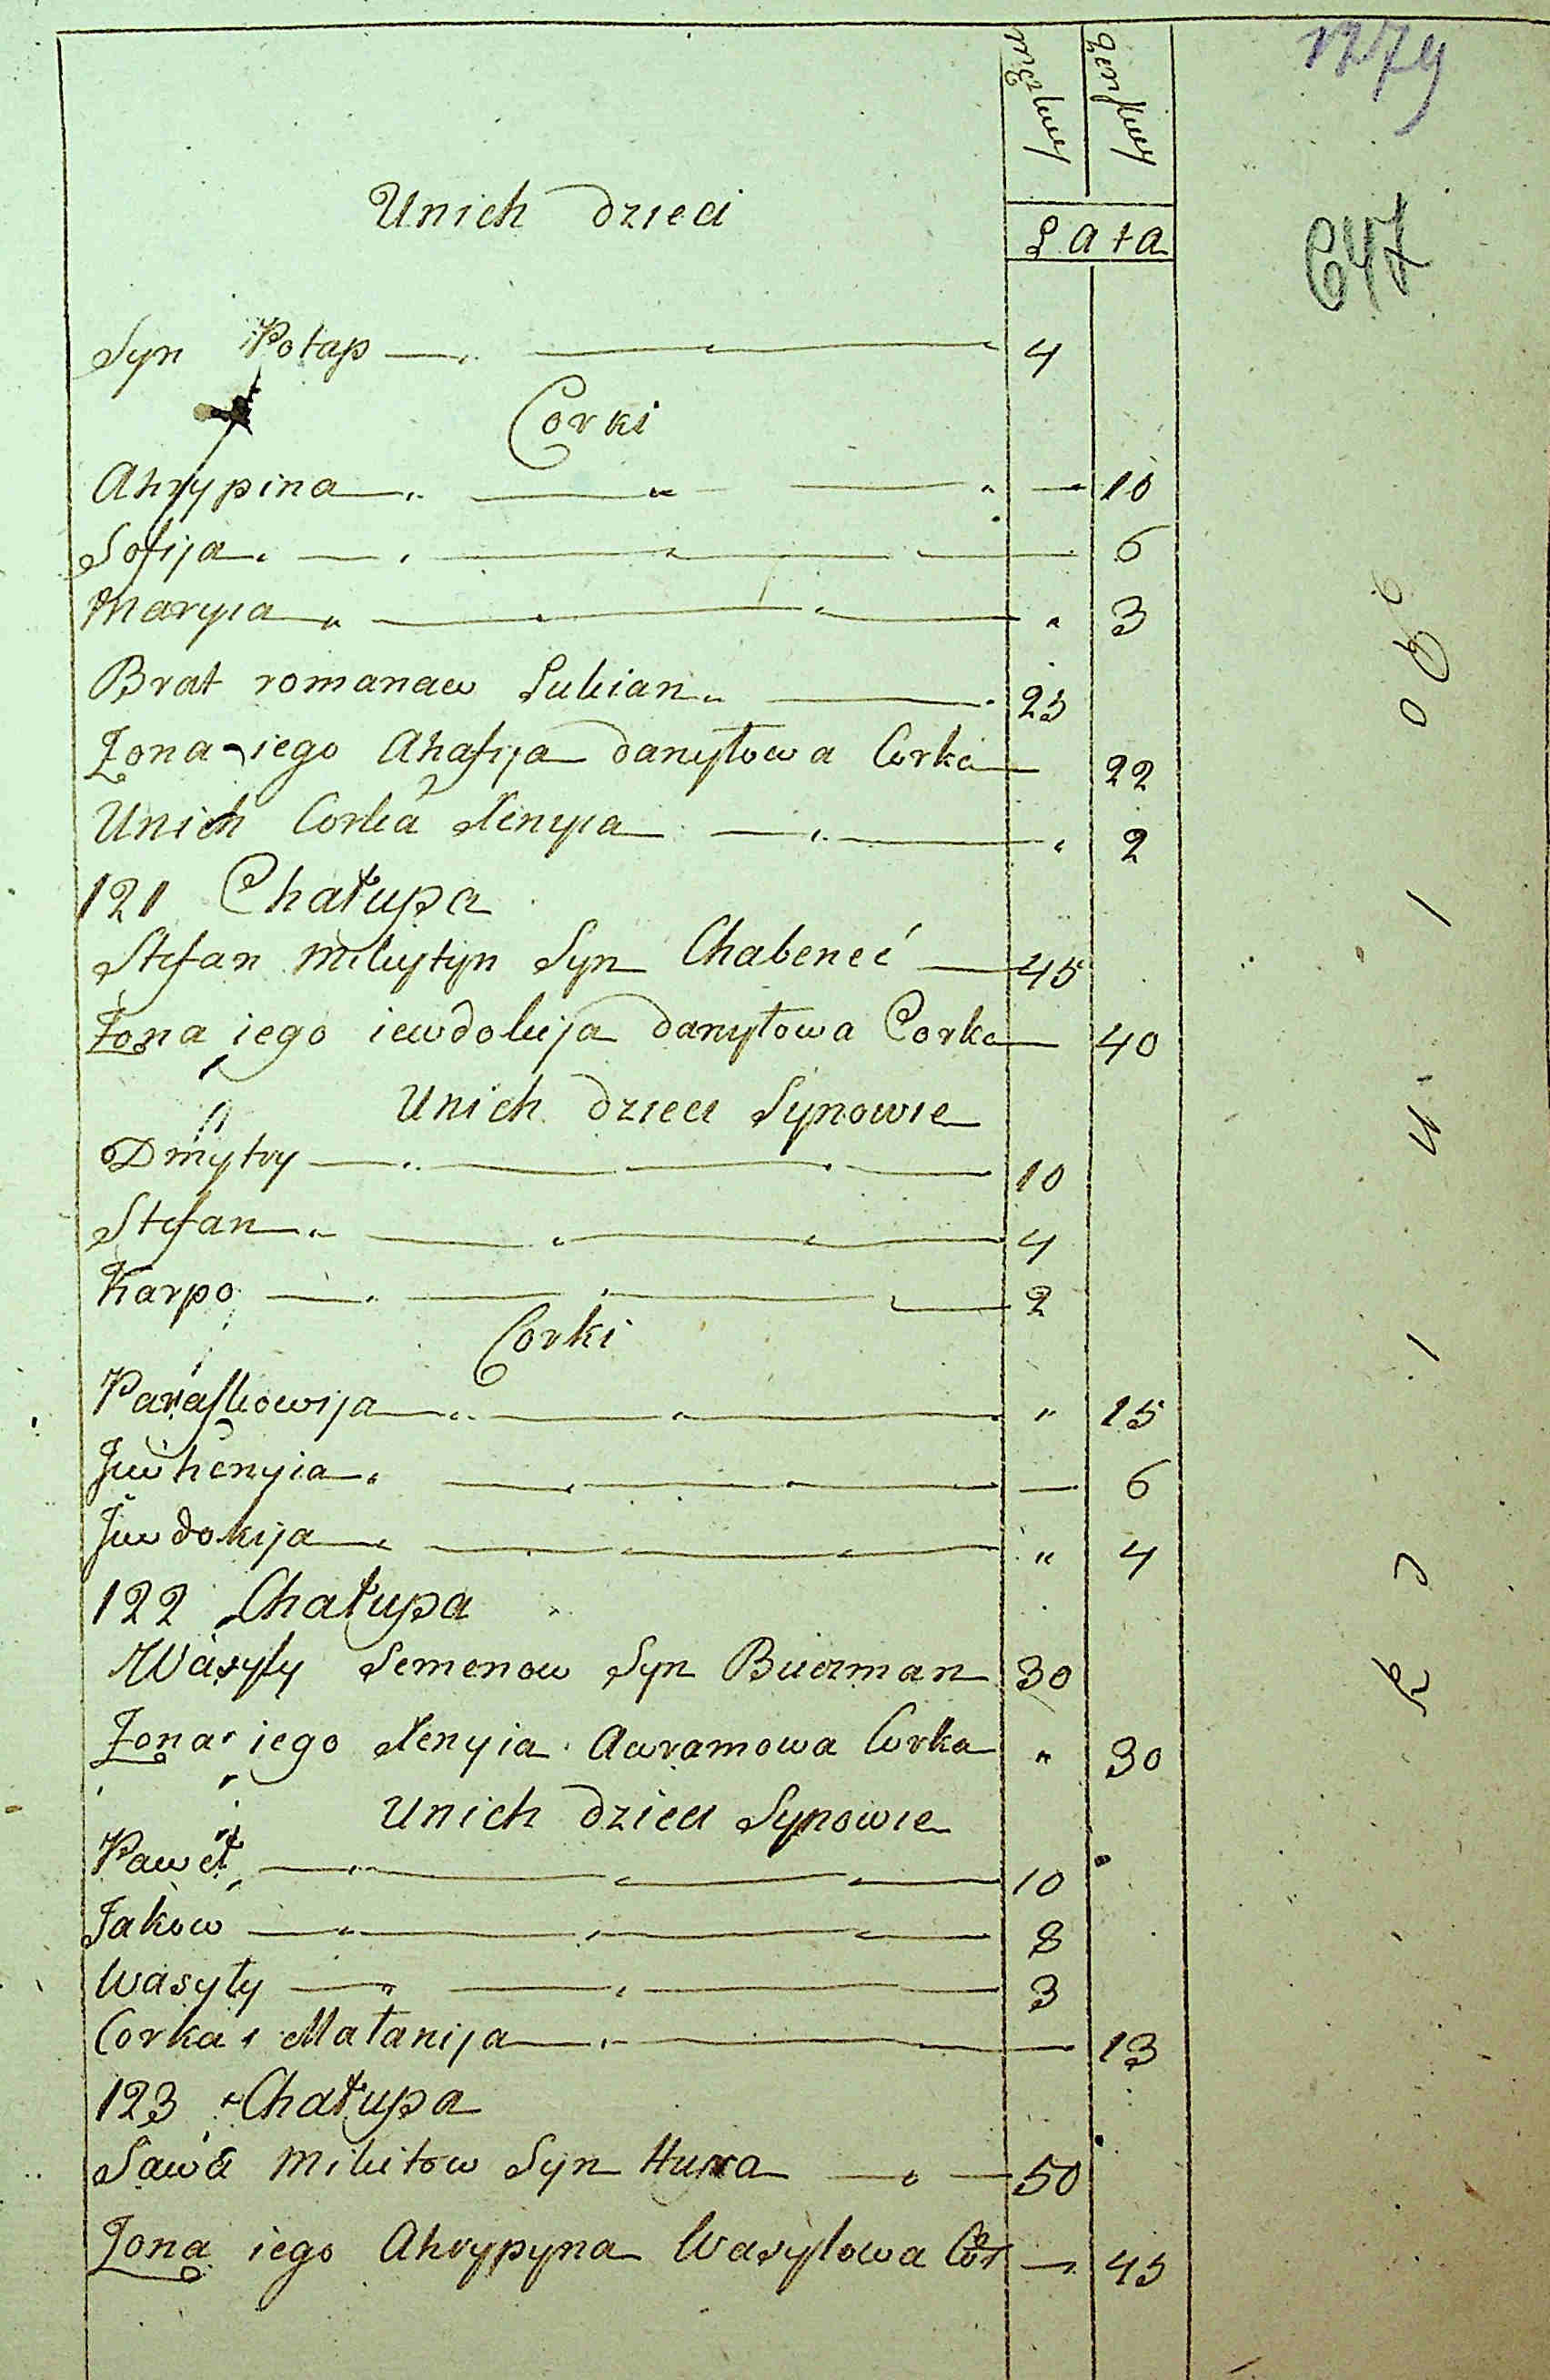 męzkiey żenskiey
1279
Unich dzieci
Lata
647
Syn Potap 4
Corki
Ahrypina 10
Sofija 6
Maryia 3
Brat romanaw Lukian 25
Zona iego Ahafija danyłowa Corka 22
Unich Corka Xenyia 2
121 Chałupa
Stefan Mikytyn Syn Chabeneć 45
Żona iego iewdokija danyłowa Corka 40
Unich dzieci Synowie
Dmytry 10
Stefan 4
Karpo 2
Corki
Paraskowija 15
Jewhenyia 6
Jewdokija 4
122 Chałupa
Wasyly Semenow Syn 30
Zona iego Xenyia Awramowa Corka 30
Unich dzieci Synowie
Paweł 10
Jakow 8
Wasyły 3
Corka Małanija 13
123 Chałupa
Sawa Mikitow Syn 50
Zona iego Ahrypyna Wasylowa Cor 45